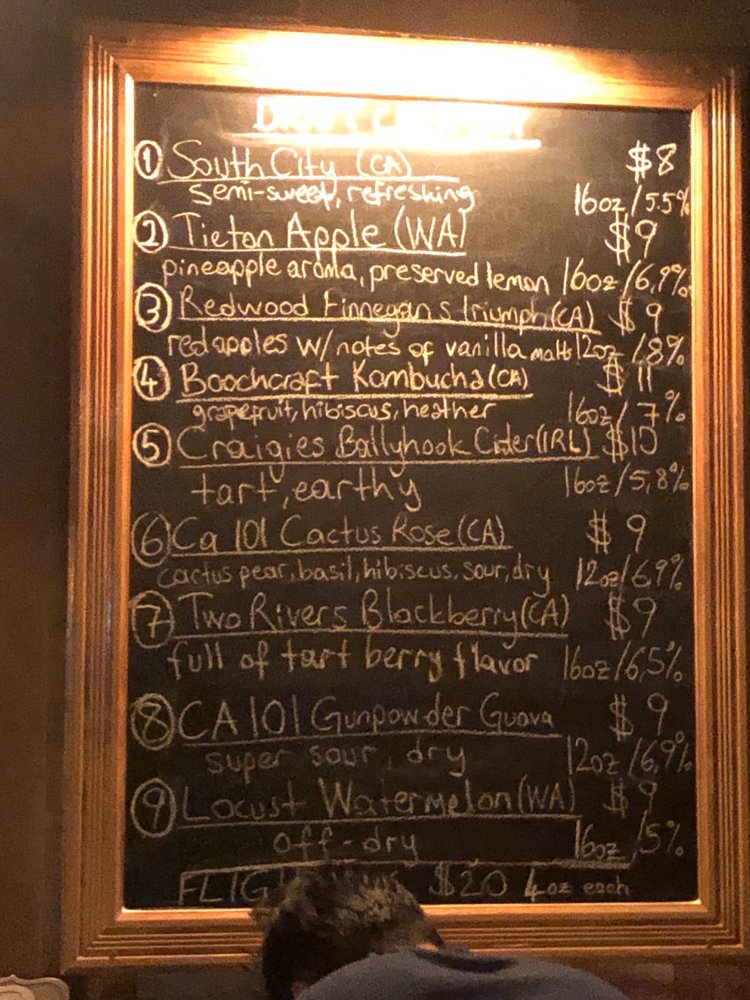 ① South City (CA) $8
semi-sweet, refreshing 16oz/5.5%
② Tieton Apple (WA) $9
pineapple aroma, preserved lemon 16oz/6.9%
③ Redwood Finnegans Triumph (CA) $9
red apples w/ notes of vanilla malt 12oz/8%
④ Boochcraft Kombucha (CA) $11
grapefruit, hibiscus, heather 16oz/7%
⑤ Craigies Ballyhook Cider (IRL) $10
tart, earthy 16oz/5.8%
⑥ Ca 101 Cactus Rose (CA) $9
cactus pear, basil, hibiscus, sour, dry 12oz/6.9%
⑦ Two Rivers Blackberry (CA) $9
full of tart berry flavor 16oz/6.5%
⑧ CA 101 Gunpowder Guava $9
super sour, dry 12oz/6.9%
⑨ Locust Watermelon (WA) $9
off-dry 16oz/5%
$20 4oz each